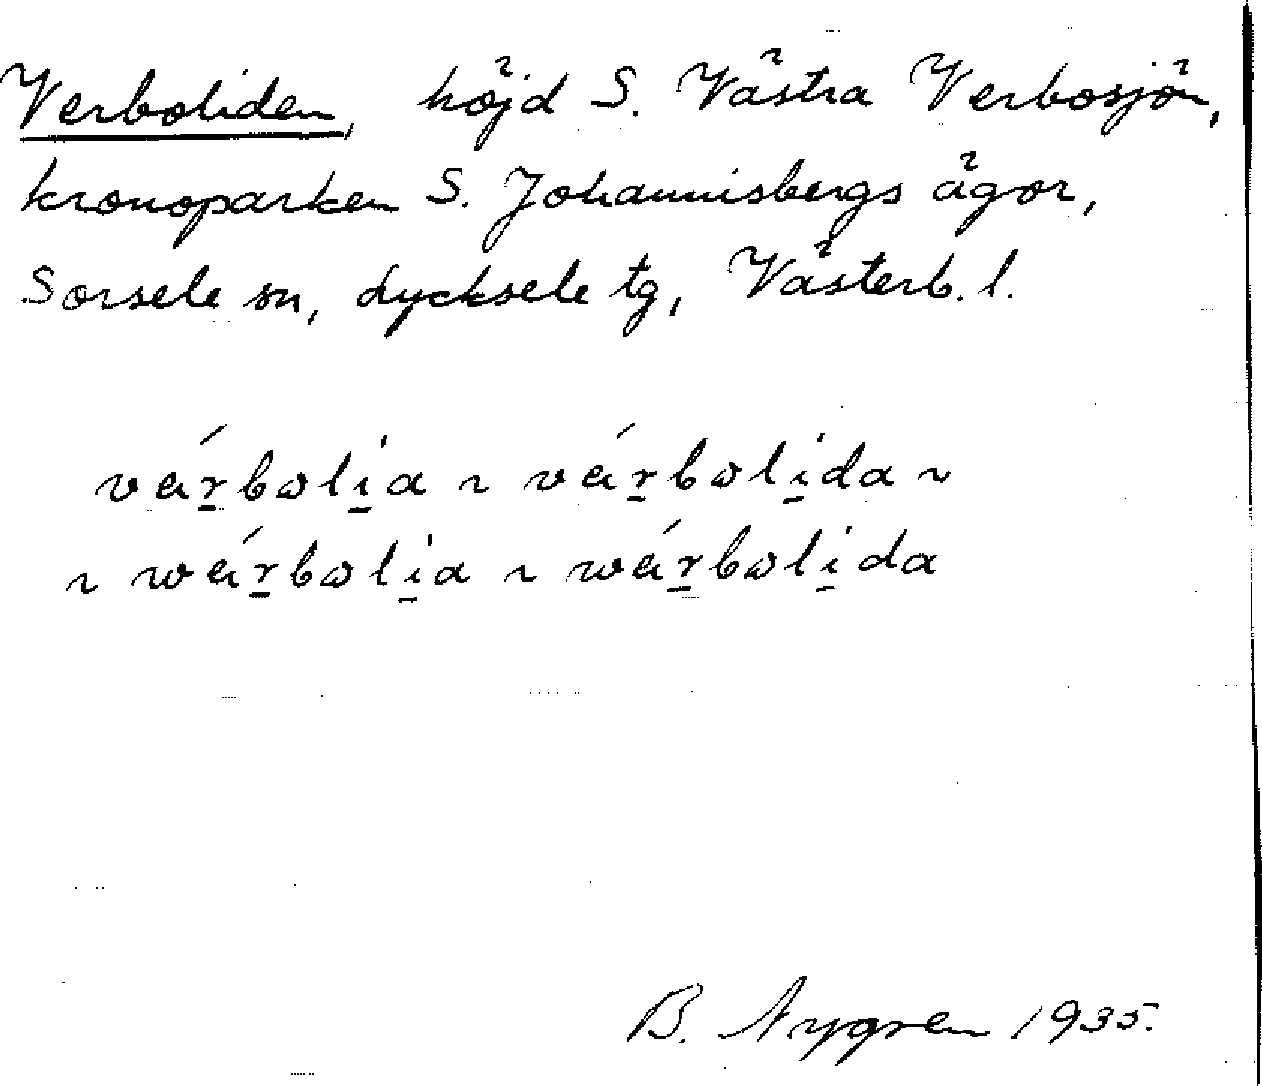 Verboliden, höjd S. Västra Verbosjön,
kronoparken S. Johannisbergs ägor,
Sorsele sn, Lycksele tg, Västerb. l.
vǽr̠bωli̠a ~ vǽr̠bωli̠da ~
~ wǽr̠bωli̠a ~ wǽr̠bωli̠da
B. Nygren 1935.